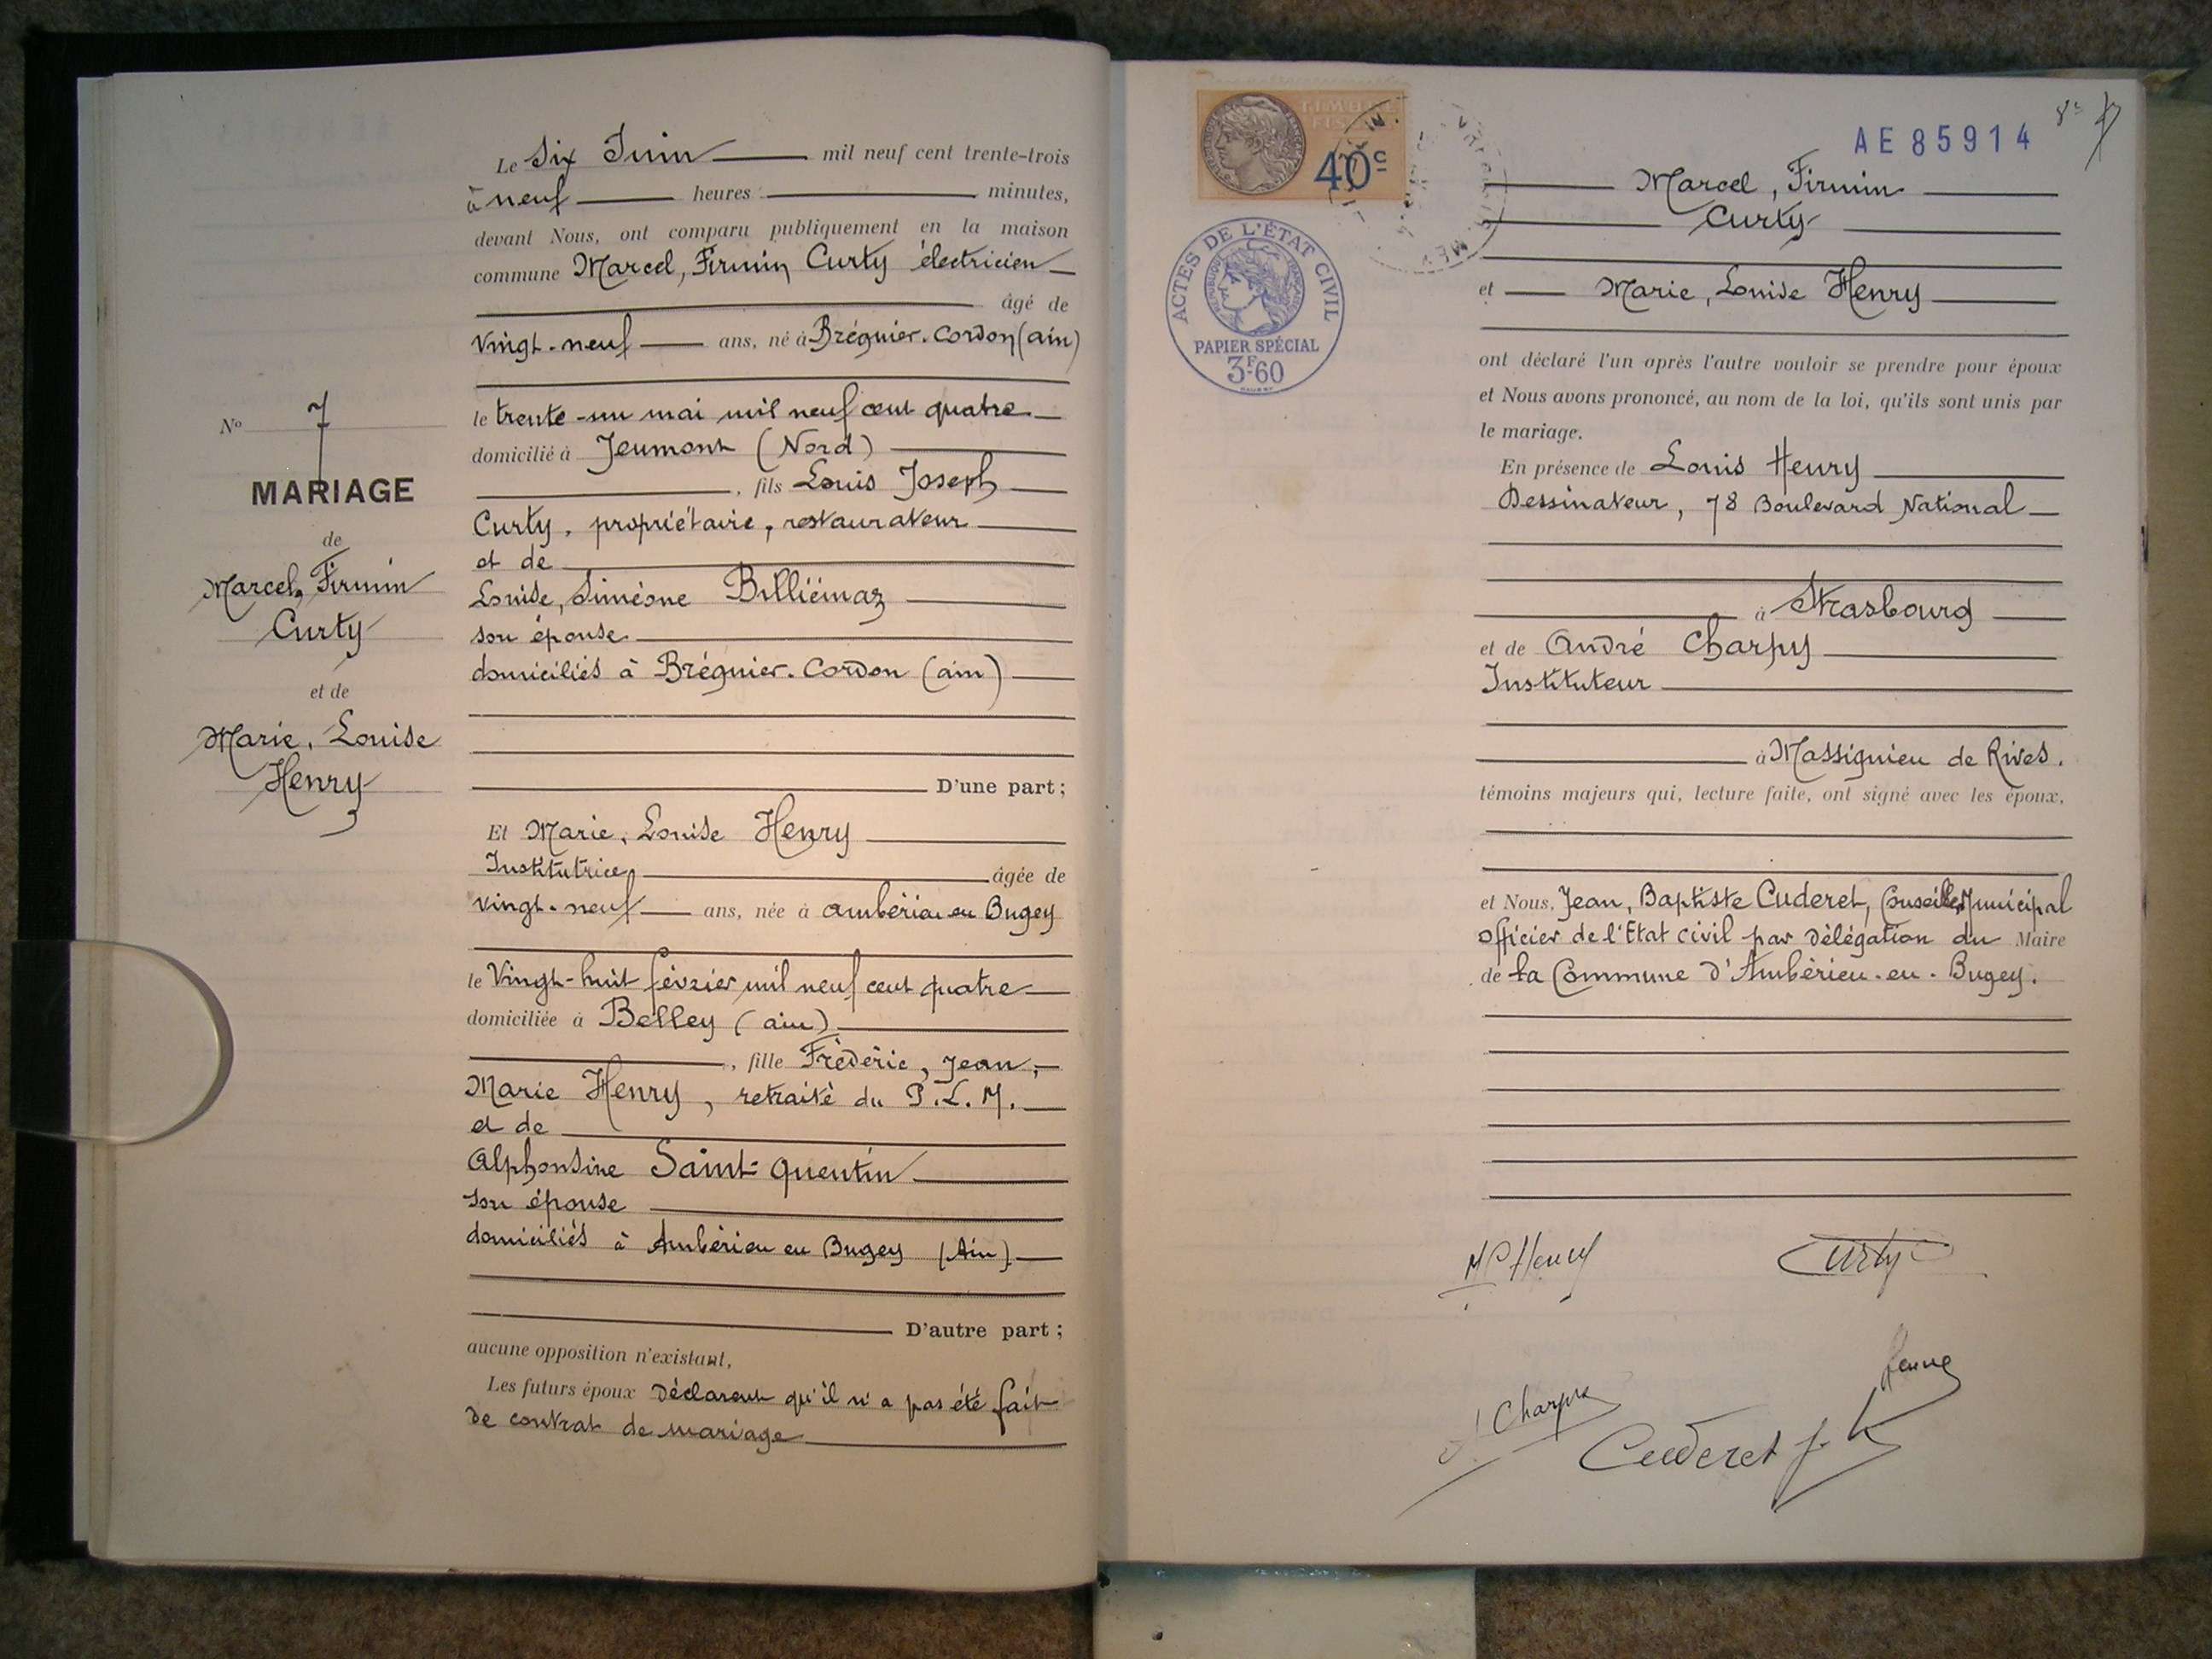 Le Six Juin mil neuf cent trente-trois
à neuf heures minutes,
devant Nous, ont comparu publiquement en la maison
commune Marcel, Firmin Curty électricien
âgé de
vingt-neuf ans, né à Brégnier-Cordon (ain)
le trente-un mai mil neuf cent quatre
domicilié à Jeumont (Nord)
, fils Louis Joseph
Curty, propriétaire, restaurateur
et de
Louise, Siméone Billiémaz
son épouse
domiciliés à Brégnier-Cordon (ain)
D'une part;
Et Marie, Louise Henry
Institutrice âgée de
vingt-neuf ans, née à ambérieu en Bugey
le Vingt-huit février mil neuf cent quatre
domiciliée à Belley (ain)
, fille Frédéric, Jean,
Marie Henry, retraité du P.L.M.
et de
Alphonsine Saint-Quentin
son épouse
domiciliés à Ambérieu en Bugey (Ain)
D'autre part;
aucune opposition n'existant,
Les futurs époux Déclarent qu'il n'a pas été fait
de contrat de mariage
No 7
MARIAGE
de
Marcel, Firmin
Curty
et de
Marie, Louise
Henry
TIMBRE
FISCAL
40c
ACTES DE L'ÉTAT CIVIL
RÉPUBLIQUE FRANÇAISE
PAPIER SPÉCIAL
3F60
AE 85914
Marcel, Firmin
Curty
et Marie, Louise Henry
ont déclaré l'un après l'autre vouloir se prendre pour époux
et Nous avons prononcé, au nom de la loi, qu'ils sont unis par
le mariage.
En présence de Louis Henry
Dessinateur, 78 Boulevard National
à Strasbourg
et de André Charpy
Instituteur
à Massignieu de Rives.
témoins majeurs qui, lecture faite, ont signé avec les époux,
et Nous, Jean, Baptiste Cuderet, Conseiller Municipal
Officier de l'Etat civil par délégation du Maire
de la Commune d'Ambérieu-en-Bugey.
ML Henry
Curty
Charpy
Cuderet J.